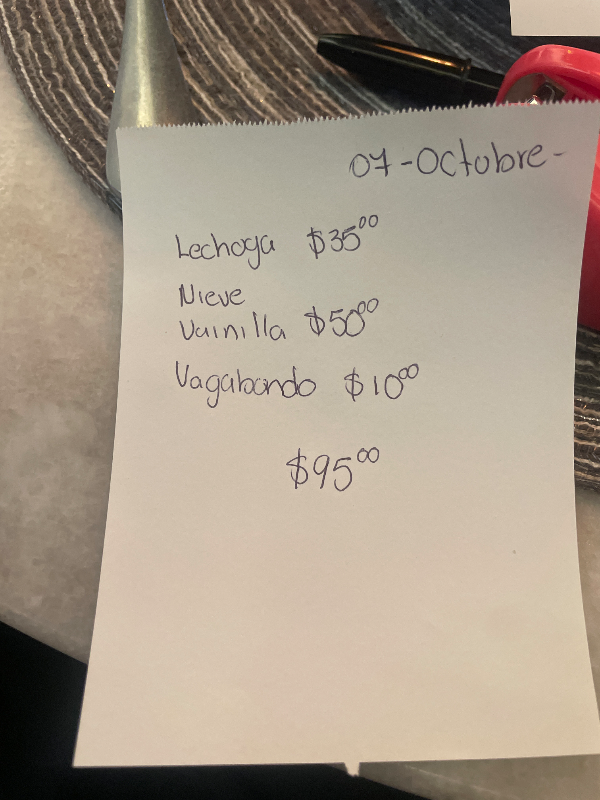 07-Octubre-
Lechoga $35⁰⁰
Nieve
Vainilla $50⁰⁰
Vagabondo $10⁰⁰
$95⁰⁰